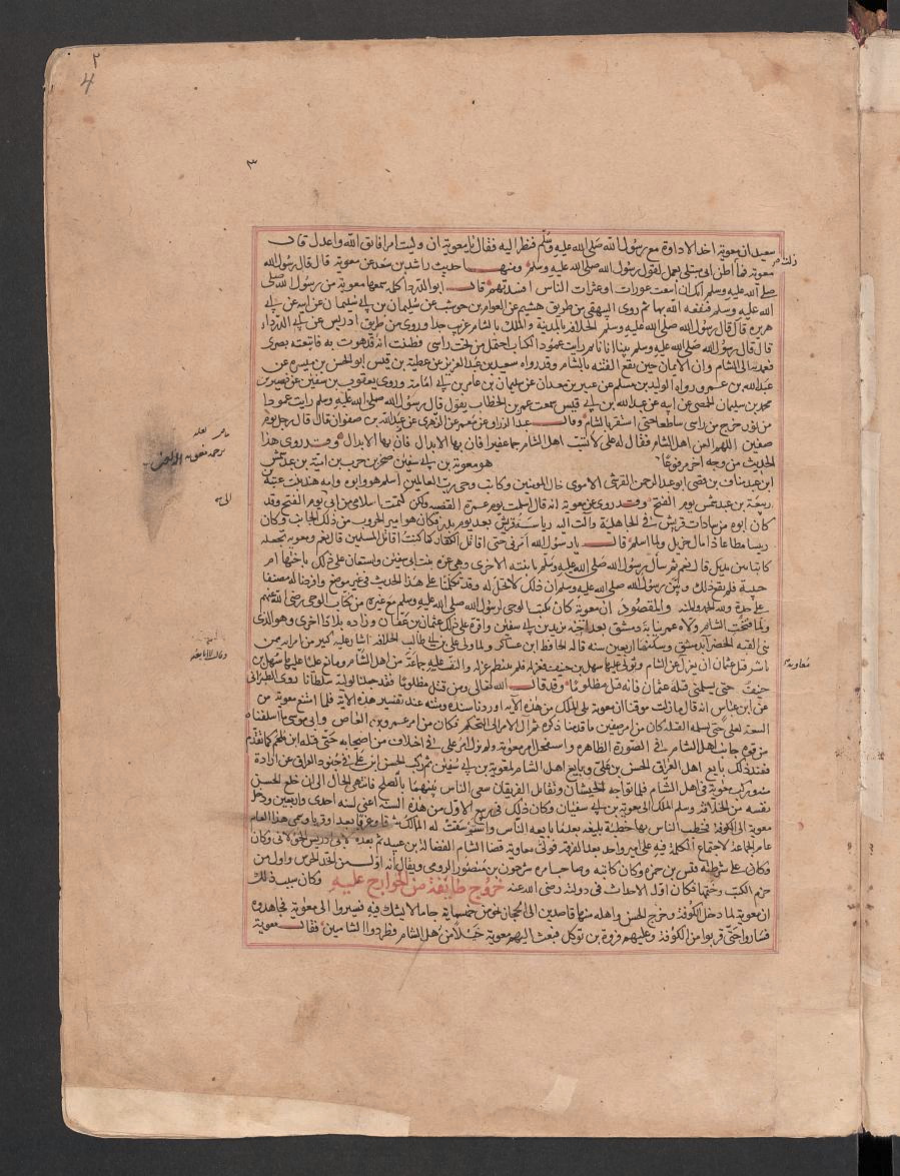 ٢
4
٣
سعيد ان معوية اخذ الاداوة مع رسول الله صلى الله عليه وسلم فنظر اليه فقال يا معوية ان وليت امرا فاتق الله واعدل قال
معوية فما زلت اظن انى مبتلى بعمل لقول رسول الله صلى الله عليه وسلم ومنها حديث راشد بن سعد عن معوية قال قال رسول الله
صلى الله عليه وسلم انك ان اتبعت عورات او عثرات الناس افسدتهم قال ابو الدردا كلمة سمعها معوية من رسول الله صلى
الله عليه وسلم فنفعه الله بها ثم روى البيهقى من طريق هشيم عن العوام بن حوشب عن سليمان بن ابى سليمان عن ابيه عن ابى
هريره قال قال رسول الله صلى الله عليه وسلم الخلافه بالمدينة والملك بالشام غريب جدا وروى من طريق ادريس عن ابى الدردا
قال قال رسول الله صلى الله عليه وسلم بينا انا نايم رايت عمود الكتاب احتمل من تحت راسى فظننت انه مذهوب به فاتبعته بصرى
فعمد به الى الشام وان الايمان حين تقع الفتنه بالشام وقد رواه سعيد بن عبد العزيز عن عطية بن قيس
عبد الله بن عمرو ورواه الوليد بن مسلم عن عفير بن معدان عن سليمان بن عامر عن ابى امامة وروى يعقوب بن سفين عن نصر بن
محمد بن سليمان الحمصى عن ابيه عن عبد الله بن ابى قيس سمعت عمر بن الخطاب يقول قال رسول الله صلى الله عليه وسلم رايت عمودا
من نور خرج من راسى ساطعا حتى استقر بالشام وقال عبد الرزاق عن معمر عن الزهرى عن عبد الله بن صفوان قال قال رجل يوم
صفين اللهم العن اهل الشام فقال له على لا تسب اهل الشام جما غفيرا فان بها الابدال فان بها الابدال وقد روى هذا
الحديث من وجه اخر مرفوعا هو معوية بن ابى سفين صخر بن حرب بن امية بن عبد شمس
ابن عبد مناف بن قصى ابو عبد الرحمن القرشى الاموى خال المومنين وكاتب وحى رب العالمين اسلم هو وابوه وامه هند بنت عتبة
ربيعة بن عبد شمس يوم الفتح وقد روى عن معوية انه قال اسلمت يوم عمرة القضيه ولكن كتمت اسلامى من ابى يوم الفتح وقد
كان ابوه من سادات قريش فى الجاهلية والت اليه رياسة قريش بعد يوم بدر فكان هو امير الحروب من ذلك الجانب وكان
رييسا مطاعا ذا مال جزيل ولما اسلم قال يا رسول الله امرنى حتى اقاتل الكفار كما كنت اقاتل المسلمين قال نعم ومعوية تجعله
كاتبا بين يديك قال نعم ثم سال رسول الله صلى الله عليه وسلم بابنته الاخرى وهى عزه بنت ابى سفين واستعان على ذلك باختها ام
حبيبة فلم يقع ذلك وبين رسول الله صلى الله عليه وسلم ان ذلك لا يحل له وقد تكلمنا على هذا الحديث فى غير موضع وافردنا له مصنفا
على حدة ولله الحمد والمنه والمقصود ان معوية كان يكتب الوحى لرسول الله صلى الله عليه وسلم مع غيره من كتاب الوحى رضى الله عنهم
ولما فتحت الشام ولاه عمر نيابة دمشق بعد اخيه يزيد بن ابى سفين واقره على ذلك عثمان بن عفان وزاده بلادا اخرى وهو الذى
بنى القبه الخضرا بدمشق وسكنها اربعين سنه قاله الحافظ ابن عساكر ولما ولى على بن ابى طالب الخلافه اشار عليه كثير من امرايه ممن
باشر قتل عثمان ان يعزل عن الشام ويولى عليها سهل بن حنيف فعزله فلم ينتظم عزله والتف عليه جماعة من اهل الشام ومانع عليا عليها سهل بن
حنيف حتى يسلمنى قتلة عثمان فانه قتل مظلوما وقد قال الله تعالى ومن قتل مظلوما فقد جعلنا لوليه سلطانا روى الطبرانى
عن ابن عباس انه قال ما زلت موقنا ان معوية يلى الملك من هذه الايه اوردنا سنده ومتنه عند تفسير هذه الاية فلما امتنع معوية من
البيعة لعلى حتى يسلمه القتله كان من امر صفين ما قدمنا ذكره ثم ال الامر الى التحكيم فكان من امر عمرو بن العاص وابى موسى ما اسلفناه
من قوة جانب اهل الشام فى الصورة الظاهره واستفحل امر معوية ولم يزل امر على فى اختلاف من اصحابه حتى قتله ابن ملجم كما تقدم
فعند ذلك بايع اهل العراق الحسن بن على وبايع اهل الشام لمعوية بن ابى سفين ثم ركب الحسن ابن على فى جنود العراق عن ارادة
منه وركب معوية فى اهل الشام فلما تواجه الجيشان وتقابل الفريقان سعى الناس بينهما بالصلح فانتهى الحال الى ان خلع الحسن
نفسه من الخلافة وسلم الملك الى معوية بن ابى سفيان وكان ذلك فى ربيع الاول من هذه السنة اعنى لسنة احدى واربعين ودخل
معوية الى الكوفة فخطب الناس بها خطبة بليغه بعد ما بايعه الناس واستوسقت له الممالك شرقا وغربا بعدا وقربا وسمى هذا العام
عام الجماعة لاجتماع الكلمة فيه على امير واحد بعد الفرقه فولى معاوية قضا الشام لفضالة بن عبيد ثم بعده لابى ادريس الخولانى وكان
وكان على شرطته قيس بن حمزه وكان كاتبه وصاحب امره سرحون بن منصور الرومى ويقال انه اول من اتخذ الحرس واول من
حزم الكتب وختمها فكان اول الاحداث فى دولته رضى الله عنه خروج طايفة من الخوارج عليه وكان سبب ذلك
ان معوية لما دخل الكوفة وخرج الحسن واهله منها قاصدين الى الحجاز نحو من خمسماية جا ما لا يشك فيه فسيروا الى معوية فجاهدوه
فساروا حتى قربوا من الكوفة وعليهم فروة بن نوفل فبعث اليهم معوية خيلا من اهل الشام فطردوا الشاميين فقال معوية
زلت
معاوية
ترجمه معويه